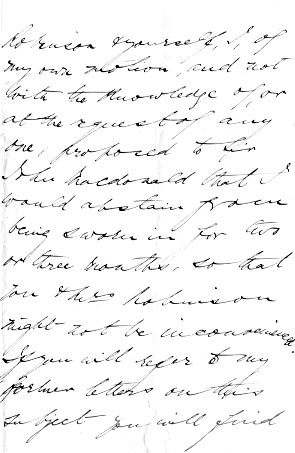 Robinson & yourself, I, of
my own motion, and not
with the knowledge of, or
at the request of any
one, proposed to Sir
John Macdonald that I
would abstain from
being sworn in for two
or three months, so that
you & Mrs Robinson
might not be inconvenienced.
If you will refer to my
former letters on this
subject you will find